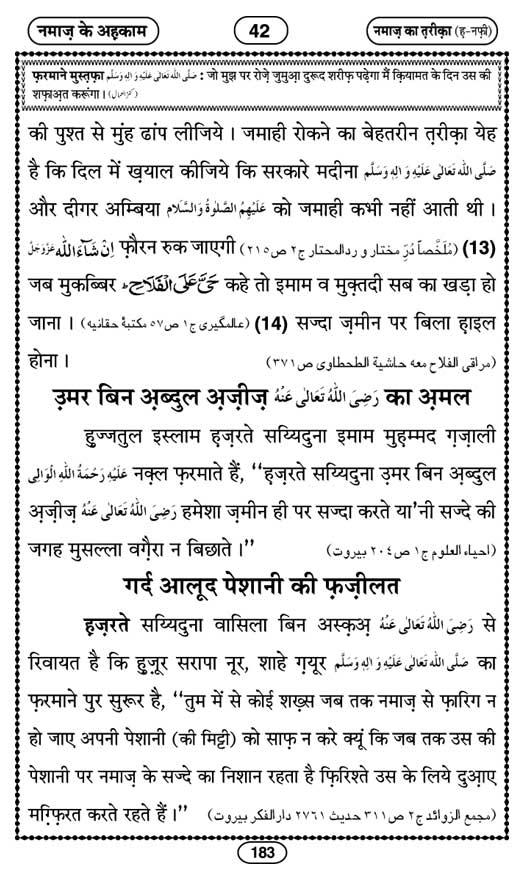 नमाज़ के अहकाम
42
नमाज़ का त़रीक़ा (ह़-नफ़ी)
फ़रमाने मुस्त़फ़ा صَلَّى اللّٰهُ تَعَالٰى عَلَيْهِ وَاٰلِهٖ وَسَلَّم : जो मुझ पर रोज़े जुमुआ़ दुरूद शरीफ़ पढ़ेगा मैं क़ियामत के दिन उस की
शफ़ाअ़त करूंगा। (کنز العمال)
की पुश्त से मुंह ढांप लीजिये । जमाही रोकने का बेहतरीन त़रीक़ा येह
है कि दिल में ख़याल कीजिये कि सरकारे मदीना صَلَّى اللّٰهُ تَعَالٰى عَلَيْهِ وَاٰلِهٖ وَسَلَّم
और दीगर अम्बिया عَلَيْهِمُ الصَّلٰوةُ وَالسَّلَام को जमाही कभी नहीं आती थी ।
اِنْ شَآءَ اللّٰه عَزَّوَجَلَّ फ़ौरन रुक जाएगी (مُلَخَّصاً دُرِّ مختار و ردالمحتار ج۲ ص۲۱۵) (13)
जब मुकब्बिर حَیَّ عَلَی الْفَلَاح कहे तो इमाम व मुक़्तदी सब का खड़ा हो
जाना । (عالمگیری ج۱ ص۵۷ مکتبۂ حقانیه) (14) सज्दा ज़मीन पर बिला ह़ाइल
होना । (مراقی الفلاح معه حاشیة الطحطاوی ص۳۷۱)
उ़मर बिन अ़ब्दुल अ़ज़ीज़ رَضِىَ اللّٰهُ تَعَالٰى عَنْهُ का अ़मल
हु़ज्जतुल इस्लाम ह़ज़रते सय्यिदुना इमाम मुह़म्मद ग़ज़ाली
عَلَيْهِ رَحْمَةُ اللّٰهِ الْوَالِی नक़्ल फ़रमाते हैं, “ह़ज़रते सय्यिदुना उ़मर बिन अ़ब्दुल
अ़ज़ीज़ رَضِىَ اللّٰهُ تَعَالٰى عَنْهُ हमेशा ज़मीन ही पर सज्दा करते या'नी सज्दे की
जगह मुसल्ला वग़ैरा न बिछाते ।” (احیاء العلوم ج۱ ص۲۰۴ بیروت)
गर्द आलूद पेशानी की फ़ज़ीलत
ह़ज़रते सय्यिदुना वासिला बिन अस्क़अ़ رَضِىَ اللّٰهُ تَعَالٰى عَنْهُ से
रिवायत है कि हु़ज़ूर सरापा नूर, शाहे ग़यूर صَلَّى اللّٰهُ تَعَالٰى عَلَيْهِ وَاٰلِهٖ وَسَلَّم का
फ़रमाने पुर सुरूर है, “तुम में से कोई शख़्स जब तक नमाज़ से फ़ारिग़ न
हो जाए अपनी पेशानी (की मिट्टी) को साफ़ न करे क्यूं कि जब तक उस की
पेशानी पर नमाज़ के सज्दे का निशान रहता है फ़िरिश्ते उस के लिये दुआ़ए
मग़्फ़िरत करते रहते हैं ।” (مجمع الزوائد ج۲ ص۳۱۱ حدیث ۲۷۶۱ دارالفکر بیروت)
183